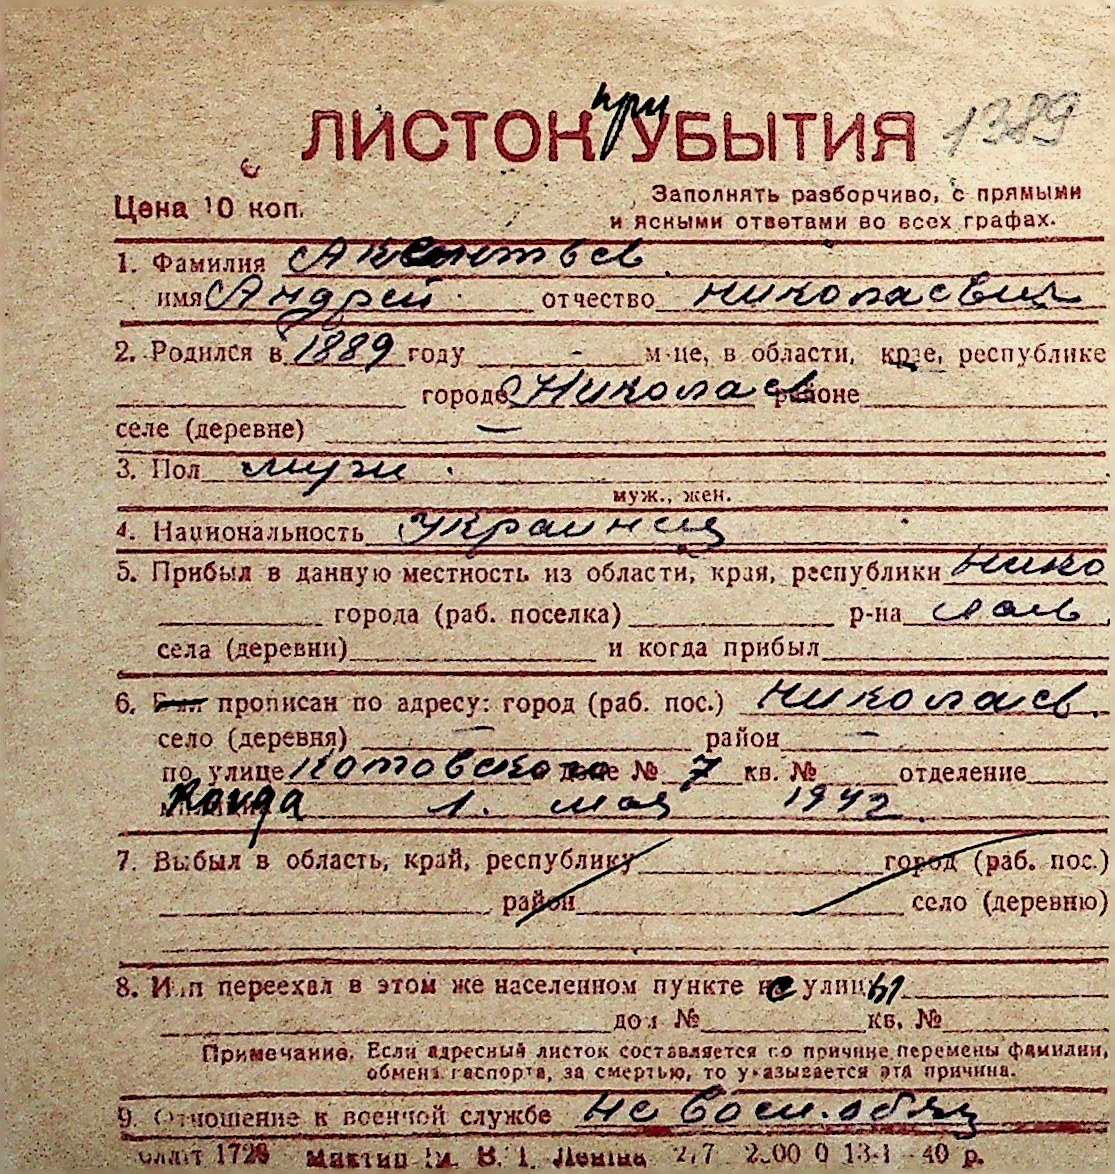 при
ЛИСТОК УБЫТИЯ 1389
Цена 10 коп.
Заполнять разборчиво, с прямыми
и ясными ответами во всех графах.
1. Фамилия
имя Андрей отчество Николаевич
2. Родился в 1889 году - м-це, в области, крае, республике
городе Николаев районе
селе (деревне) —
3. Пол муж
муж., жен.
4. Национальность Украинец
5. Прибыл в данную местность из области, края, республики Нико
города (раб. поселка) р-на лаев
села (деревни) и когда прибыл
6. Был прописан по адресу: город (раб. пос.) Николаев.
село (деревня) — район —
по улице Котовского доме № 7 кв. № отделение
Когда 1. мая 1942.
7. Выбыл в область, край, республику город (раб. пос.)
район село (деревню)
8. Или переехал в этом же населенном пункте с улицы
дом № кв. №
Примечание. Если адресный листок составляется по причине перемены фамилии,
обмена паспорта, за смертью, то указывается эта причина.
9. Отношение к военной службе не воен. обяз
1726 В. І. Леніна 40 р.